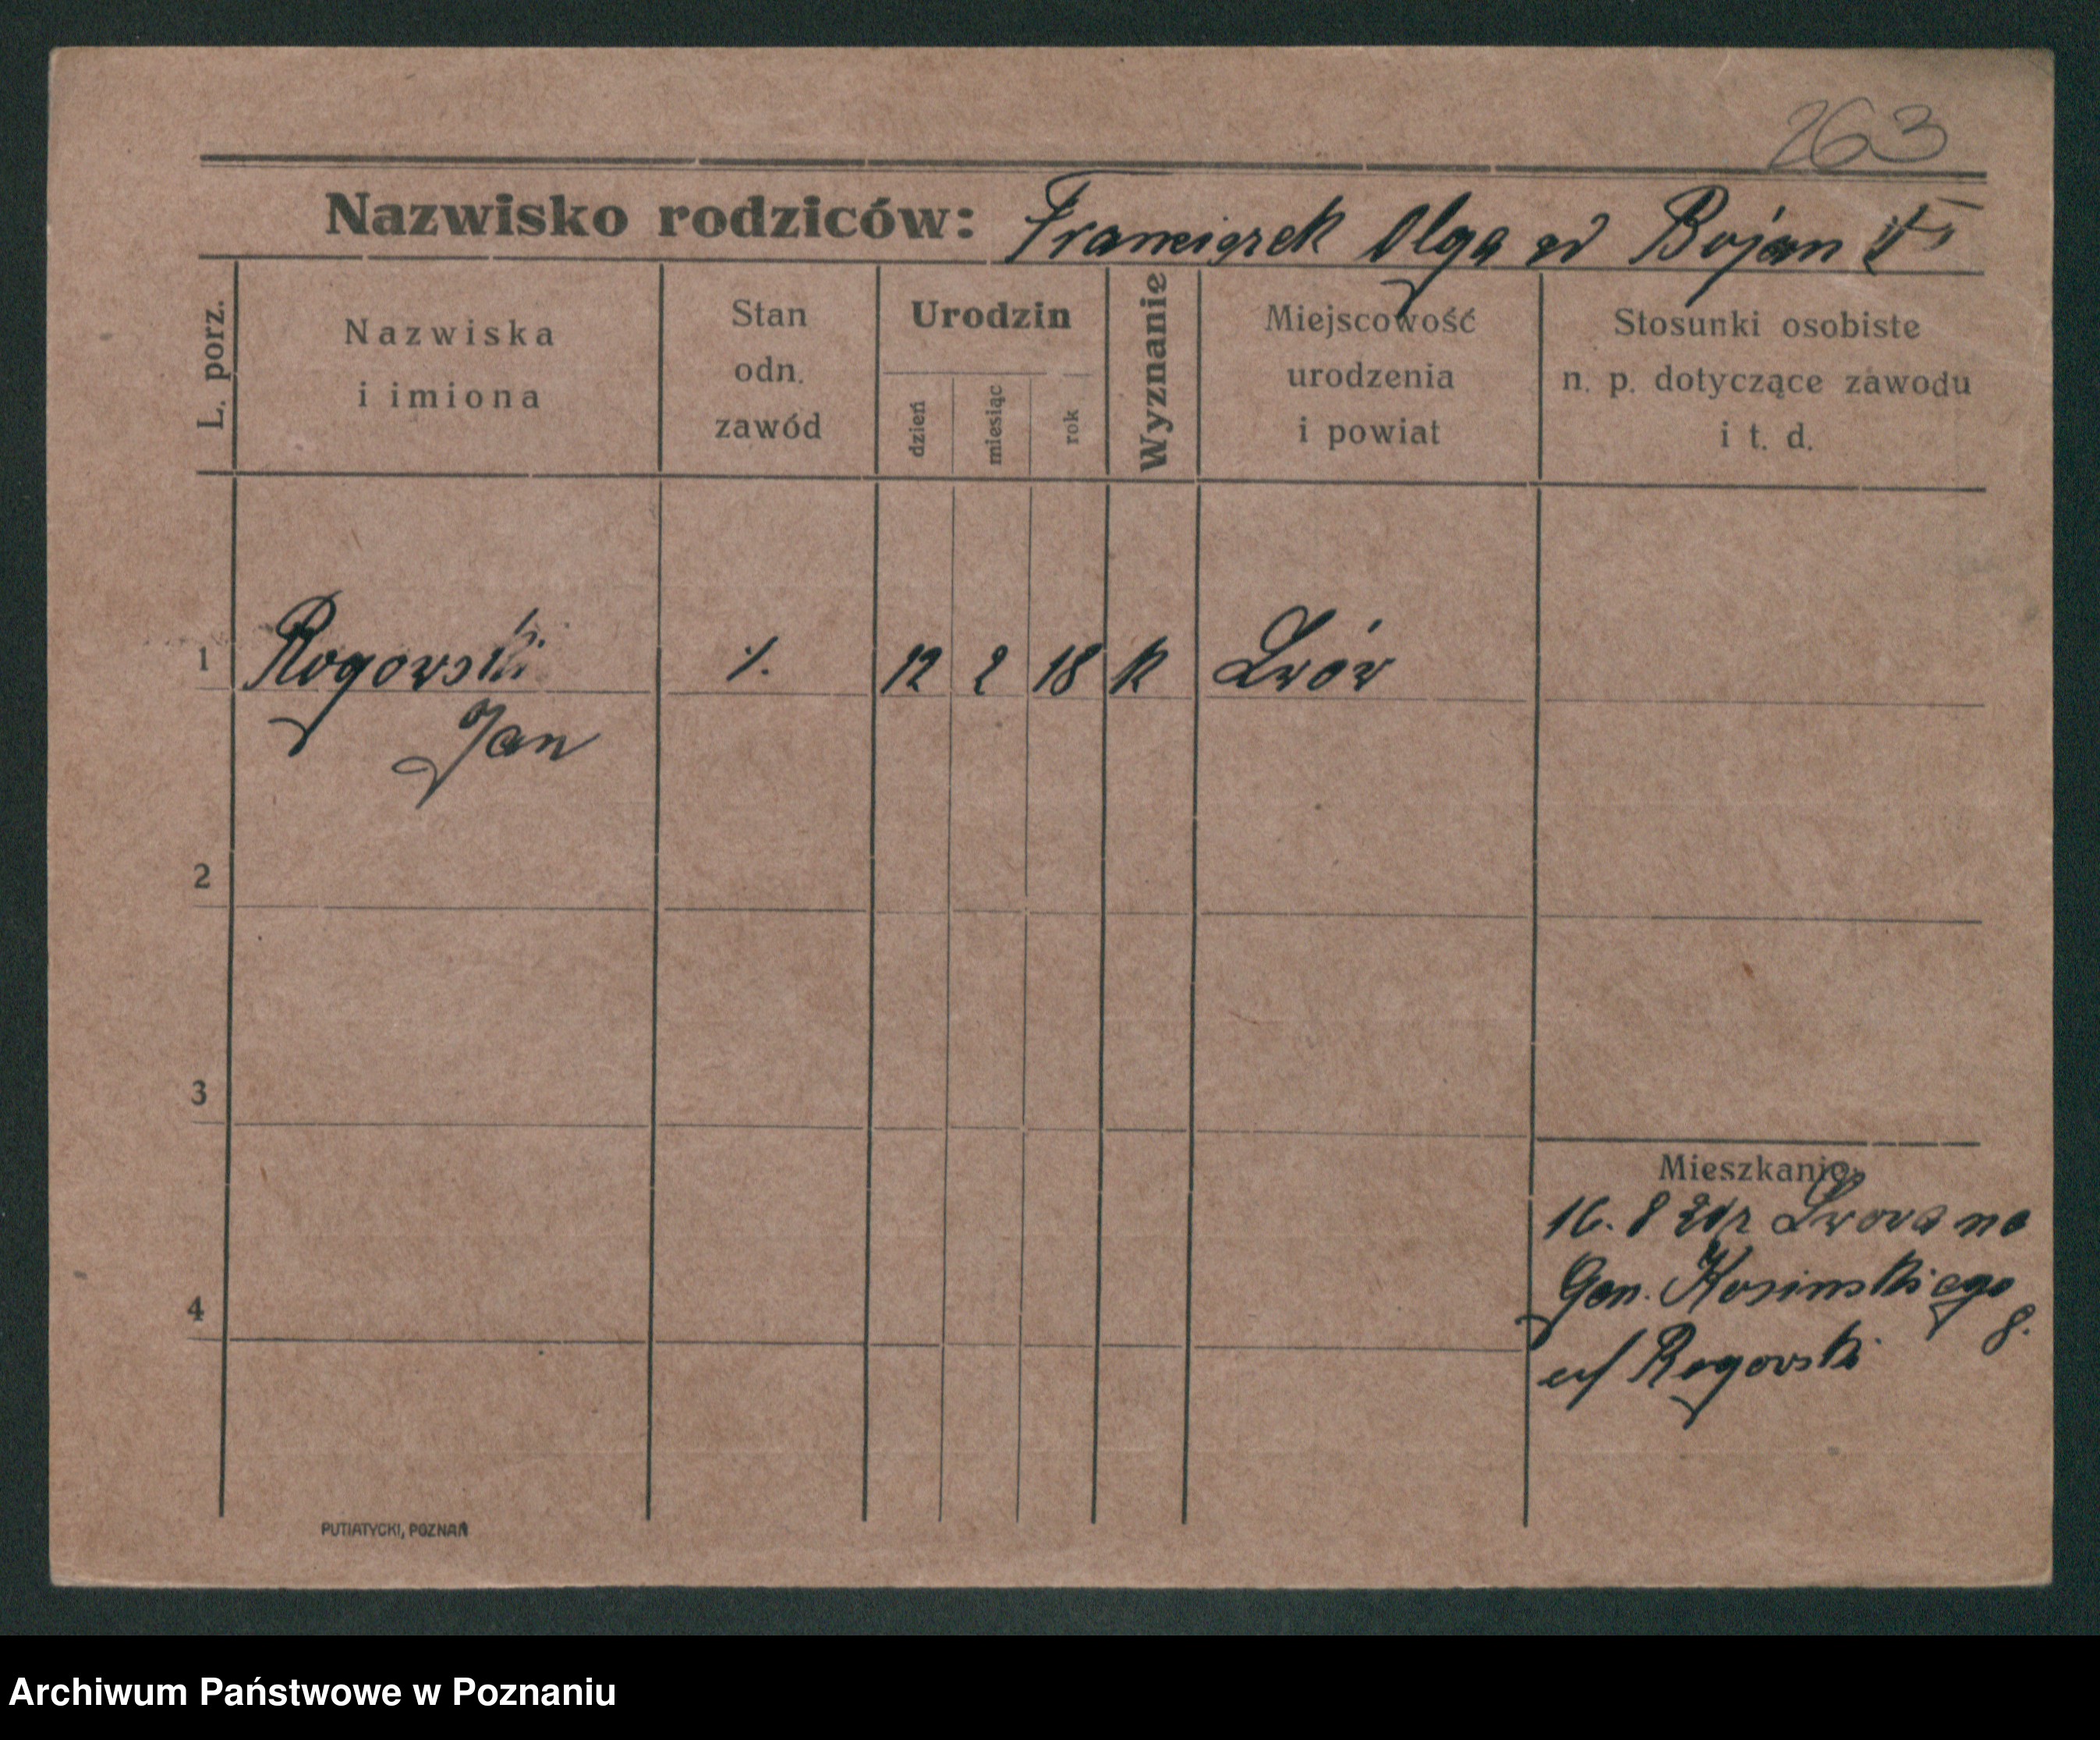 263
Nazwisko rodziców: Franciszek Olga zd Bojan
L. porz.
Nazwiska
i imiona
Stan
odn.
zawód
Urodzin
dzień
miesiąc
rok
Wyznanie
Miejscowość
urodzenia
i powiat
Stosunki osobiste
n. p. dotyczące zawodu
i t. d.
1 Rogowski ·/. 12 2 18 k Lwów
Jan
2
3
4
Mieszkanie
16. 8 Lwowa na
Gen. Kosinskiego
8.
Rogowski
PUTIATYCKI, POZNAŃ
Archiwum Państwowe w Poznaniu